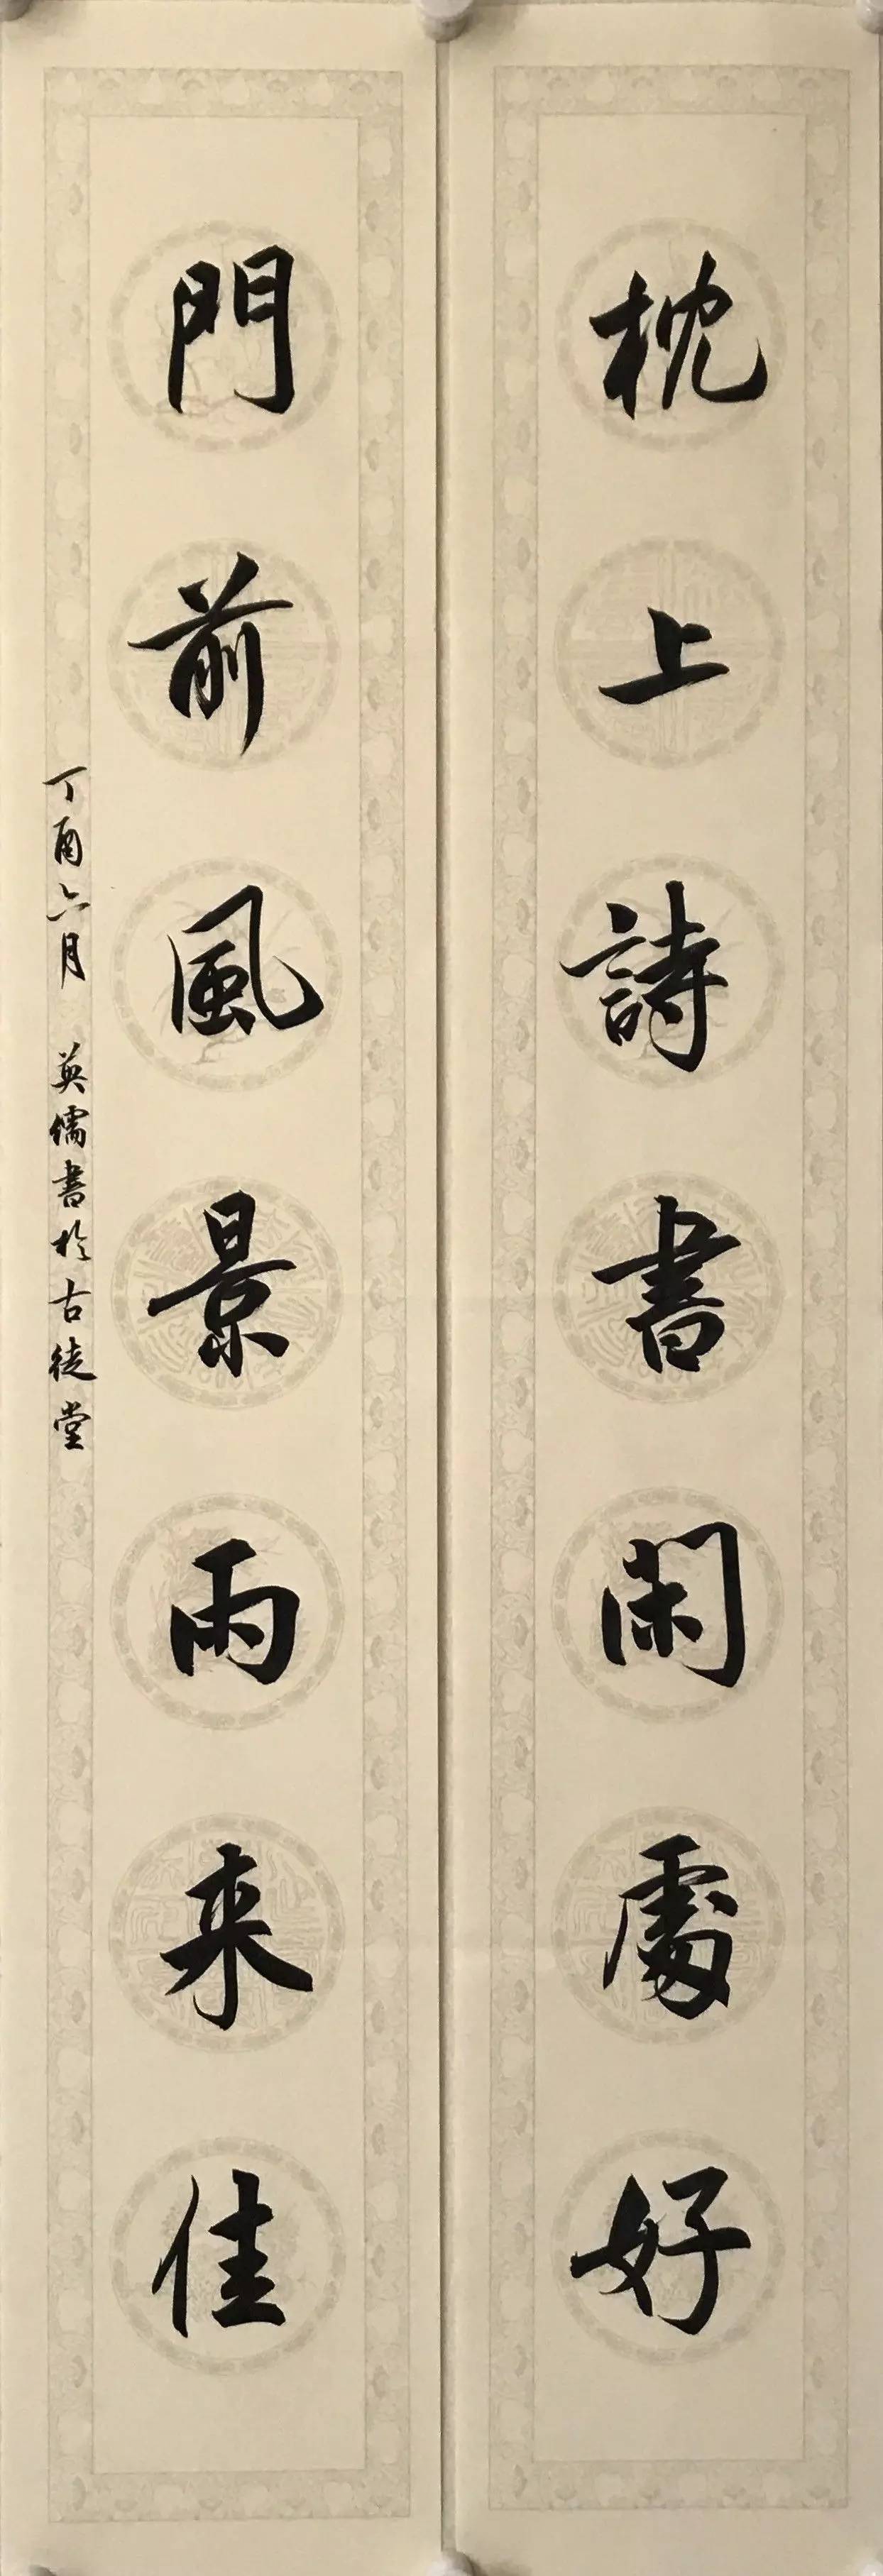 枕上詩書閑處好
門前風景雨来佳
丁酉六月 英儒書於古徒堂